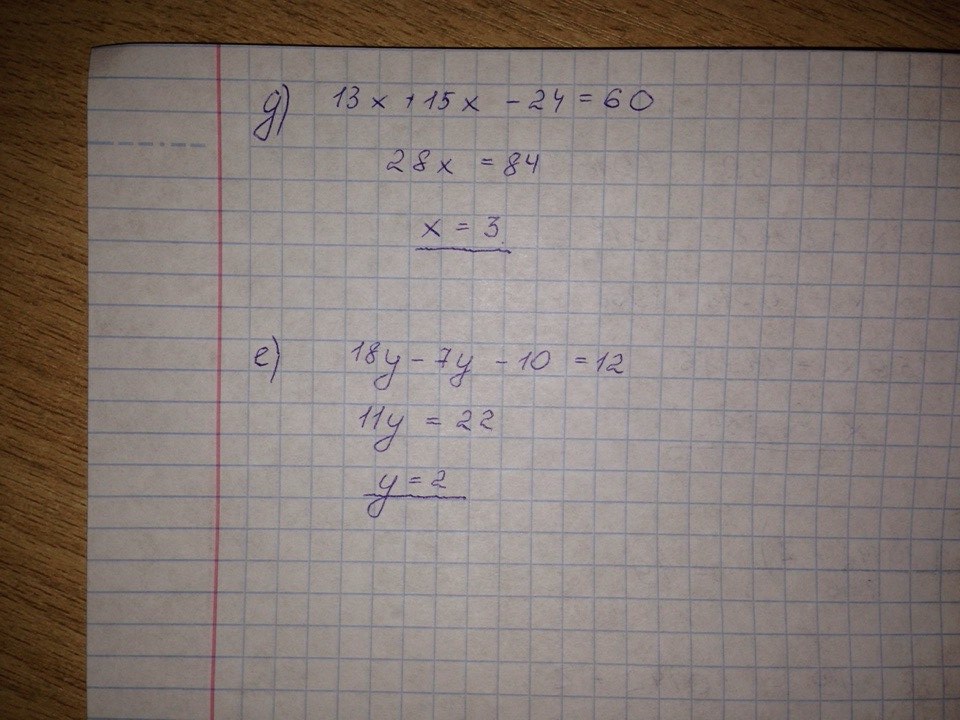 д) 13x + 15x - 24 = 60
28x = 84
x = 3
е) 18y - 7y - 10 = 12
11y = 22
y = 2